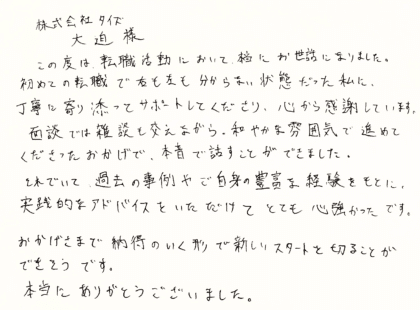 株式会社タイズ
大迫様
この度は、転職活動において、極にお世話になりました。
初めての転職で右も左も分からない状態だった私に、
丁寧に寄り添ってサポートしてくださり、心から感謝しています。
面談では雑談も交えながら、和やかな雰囲気で進めて
くださったおかげで、本音で話すことができました。
それでいて、過去の事例やご自身の豊富な経験をもとに、
実践的なアドバイスをいただけてとても心強かったです。
おかげさまで納得のいく形で新しいスタートを切ることが
できそうです。
本当にありがとうございました。